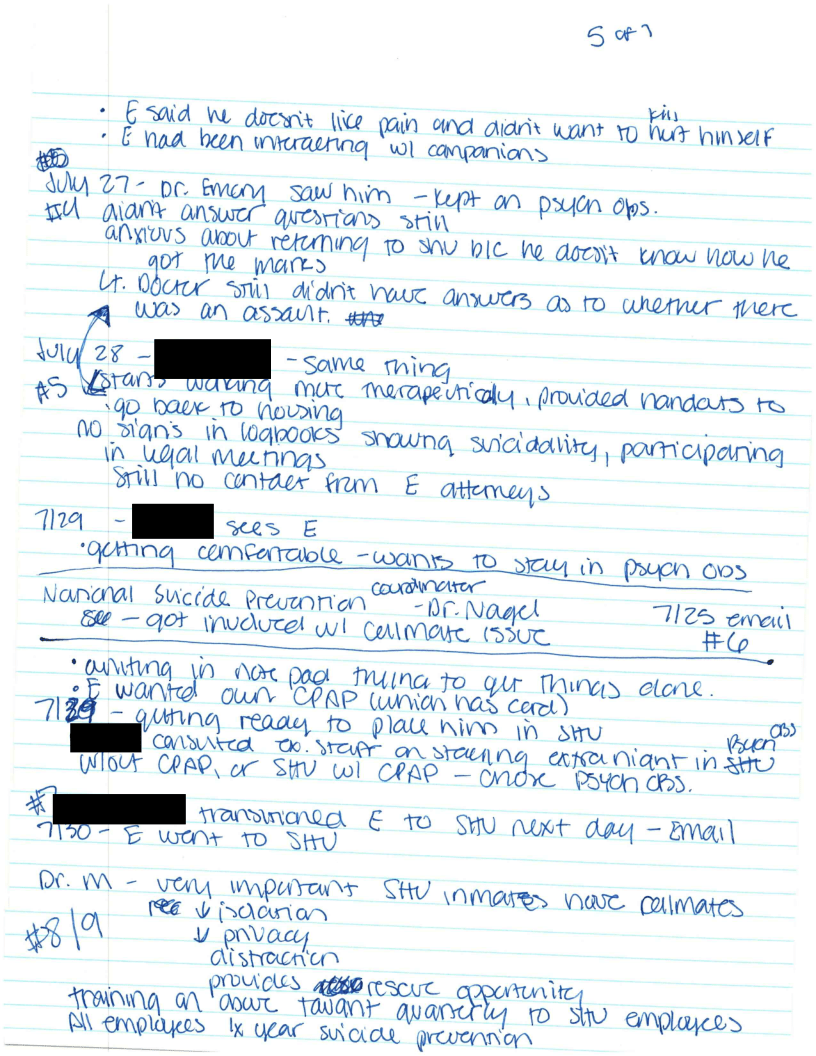 5 of 7
• E said he doesn't like pain and didn't want to kill
hurt himself
• E had been interacting w/ companions
July 27 - Dr. Emory saw him - kept on psych obs.
#4 didn't answer questions still
anxious about returning to shu b/c he doesn't know how he
got the marks
Lt. Doctor still didn't have answers as to whether there
was an assault.
July 28 - - same thing
#5 starts working more therapeutically, provided handouts to
• go back to housing
no signs in logbooks showing suicidality, participating
in legal meetings
Still no contact from E attorneys
7/29 - sees E
• getting comfortable - wants to stay in psych obs
National Suicide Prevention coordinator
- Dr. Nagel 7/25 email
- got involved w/ cellmate issue #6
• writing in note pad trying to get things done.
• E wanted own CPAP (which has cord)
7/29 - getting ready to place him in SHU
consulted ex. staff on staying extra night in Psych obs
SHU
w/out CPAP, or SHU w/ CPAP - chose psych obs.
#7 transitioned E to SHU next day - Email
7/30 - E went to SHU
Dr. M - very important SHU inmates have cellmates
↓ isolation
#8/9 ↓ privacy
distraction
provides rescue opportunity
training on above quarterly to SHU employees
All employees 1x year suicide prevention